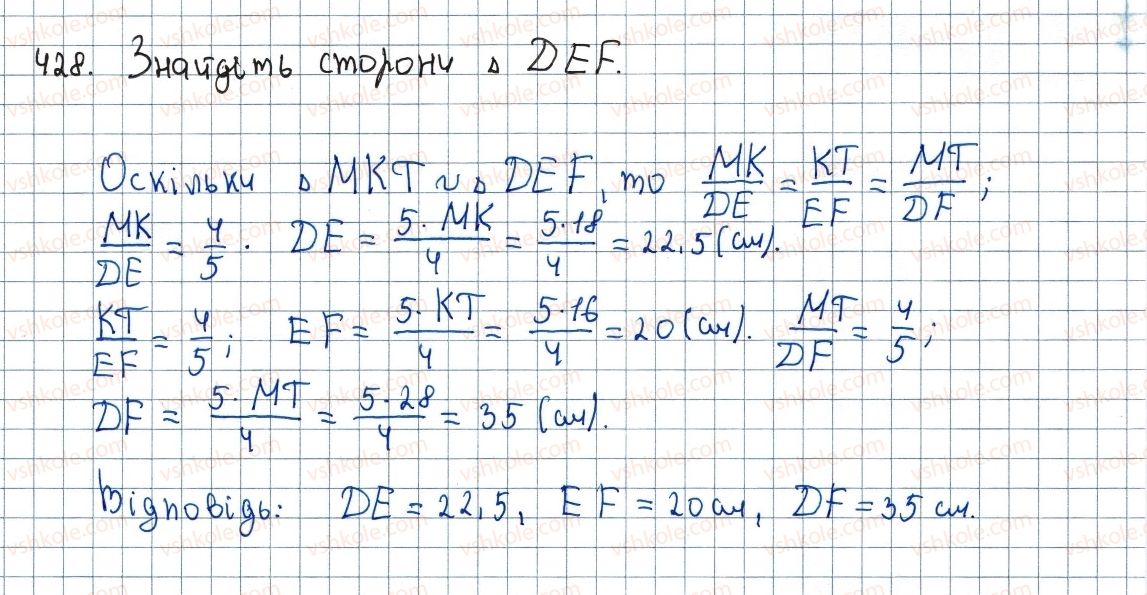 428. Знайдіть сторони △ DEF.
Оскільки △ MKT ~ △ DEF, то MK/DE = KT/EF = MT/DF;
MK/DE = 4/5. DE = 5·MK/4 = 5·18/4 = 22,5 (см).
KT/EF = 4/5; EF = 5·KT/4 = 5·16/4 = 20 (см). MT/DF = 4/5;
DF = 5·MT/4 = 5·28/4 = 35 (см).
Відповідь: DE = 22,5, EF = 20 см, DF = 35 см.